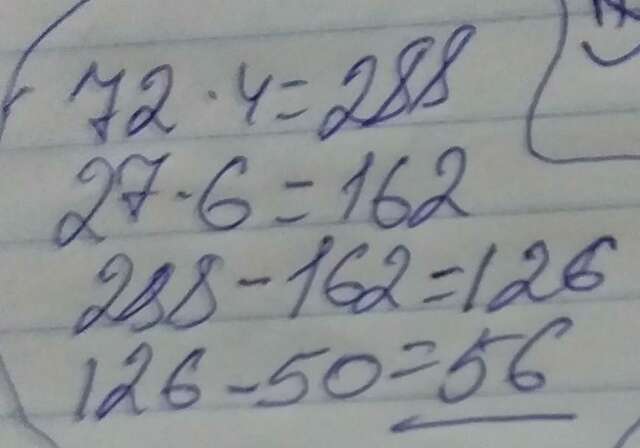 72 · 4 = 288
27 · 6 = 162
288 - 162 = 126
126 - 50 = 56